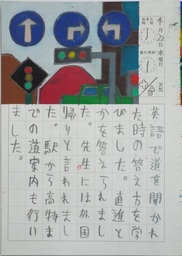 月22日水曜日
英語で道を聞かれ
た時の答え方を学
びました。直進と
かを答えられまし
た。先生には外国
帰りと言われまし
た。駅から高特ま
での道案内も行い
ました。